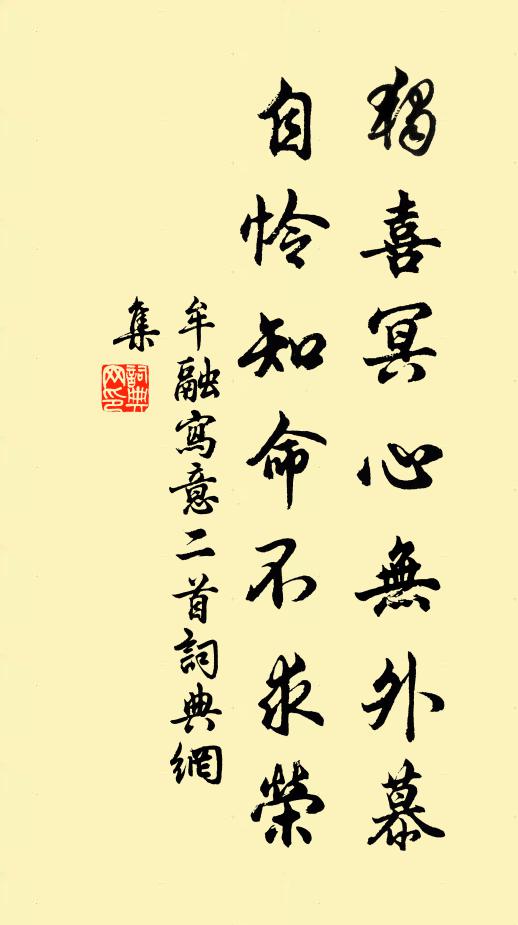 獨喜冥心無外慕
自憐知命不求榮
牟融寫意二首詞典網
集
詞典網印